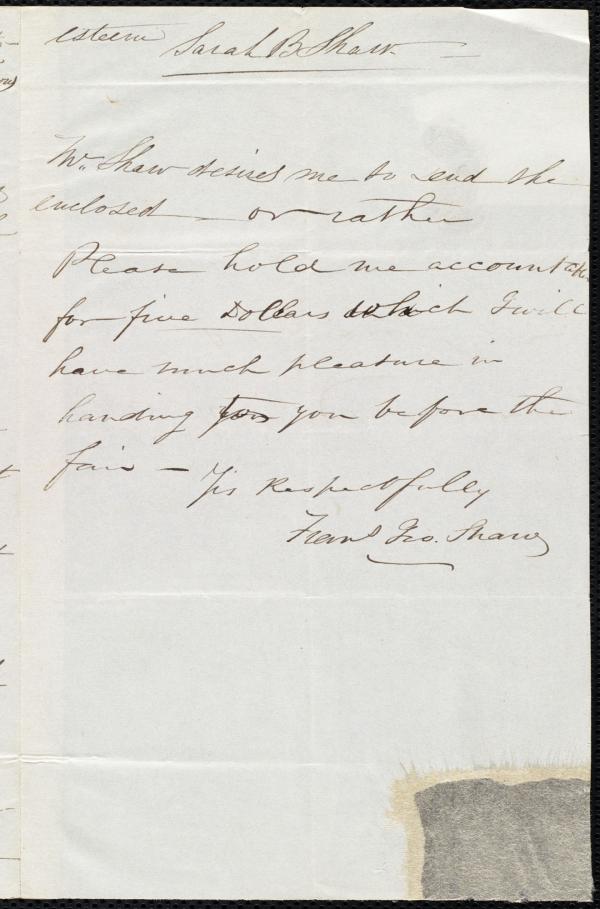 esteem
Sarah B. Shaw
Mr. Shaw desires me to send the
enclosed or rather
Please hold me account
for five Dollars which I will
have much pleasure in
handing you before the
fair —
Yrs Respectfully
Frans Geo. Shaw